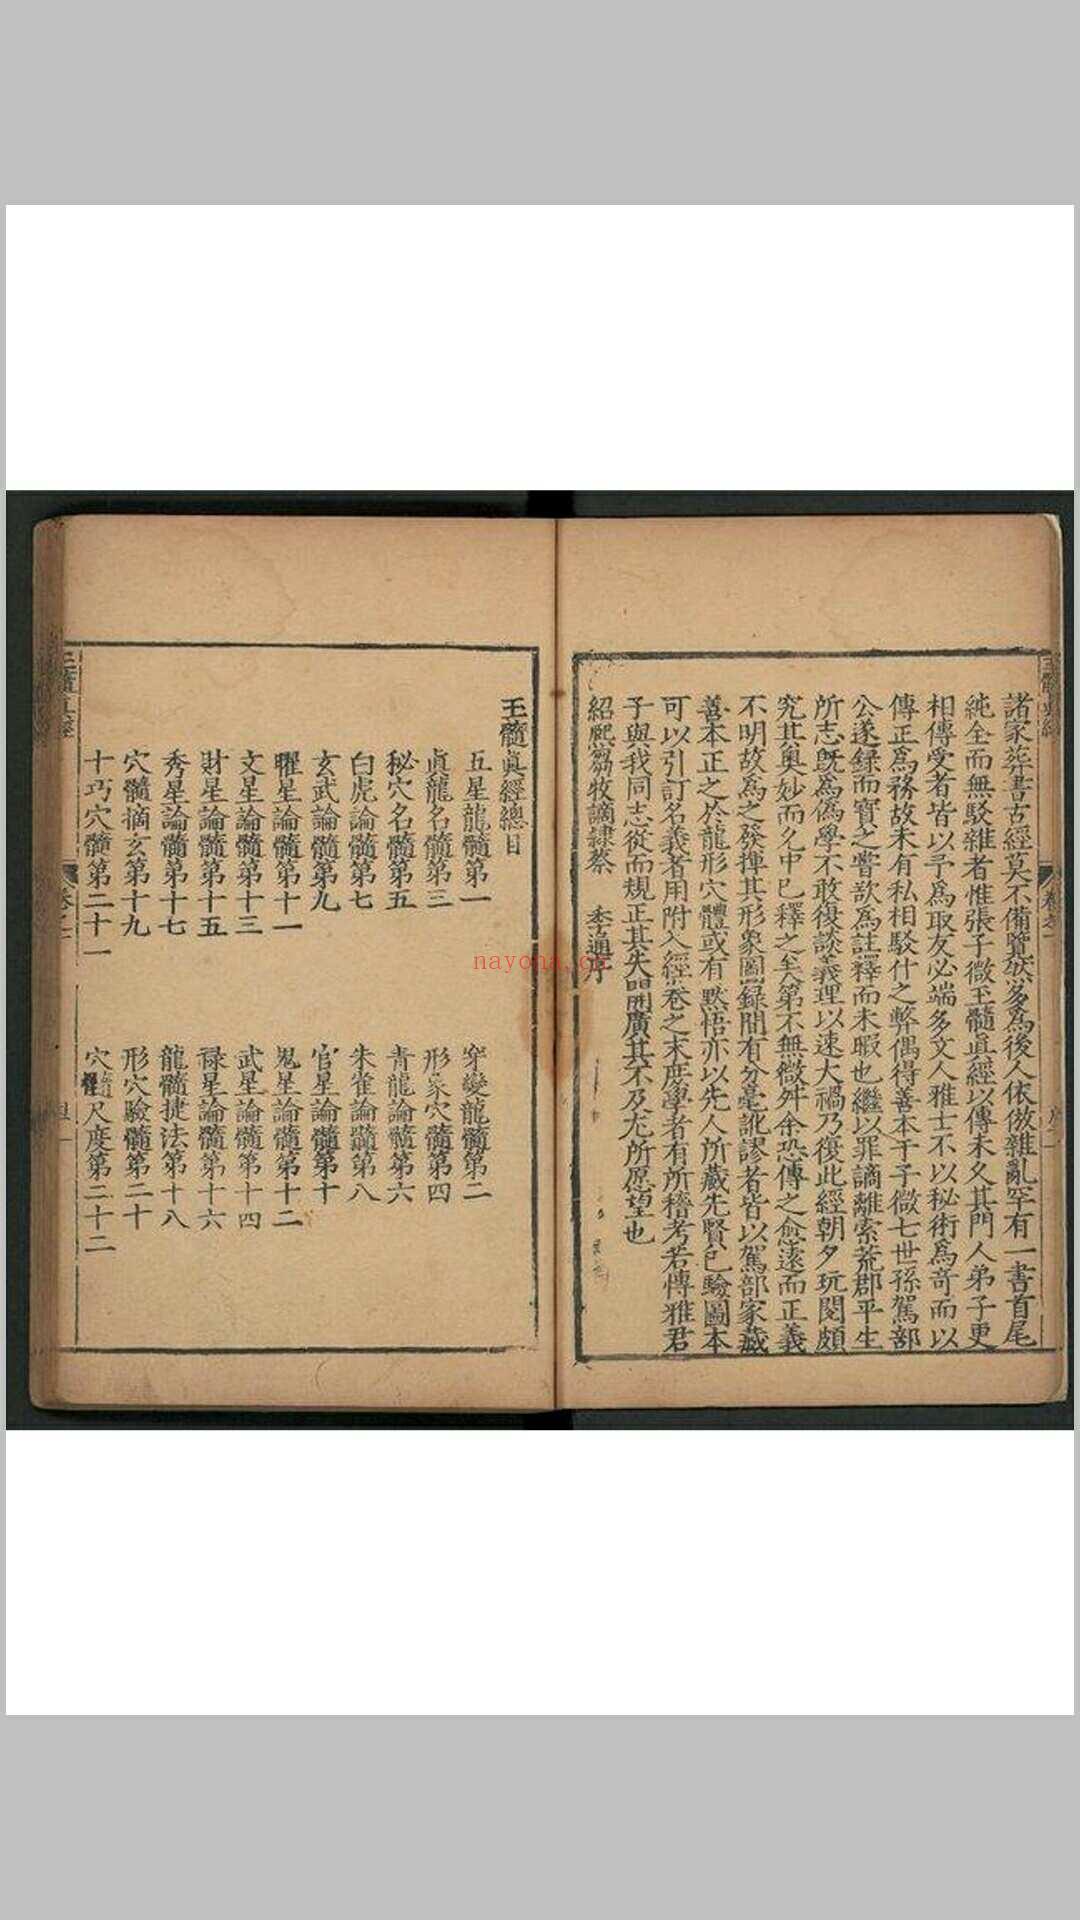 諸家葬書古經莫不備覽然多爲後人依倣雜亂罕有一書首尾
純全而無駁雜者惟張子微玉髓眞經以傳未久其門人弟子更
相傳受者皆以予爲取友必端多文人雅士不以秘術爲奇而以
傳正爲務故未有私相駁什之弊偶得善本于子微七世孫駕部
公遂録而寶之嘗欲爲註釋而未暇也繼以罪謫離索荒郡平生
所志旣爲偽學不敢復談義理以速大禍乃復此經朝夕玩閱頗
究其奥妙而允中已釋之矣第不無微舛余恐傳之愈遠而正義
不明故爲之發揮其形象圖録間有分毫訛謬者皆以駕部家藏
善本正之於龍形穴體或有默悟亦以先人所藏先賢已驗圖本
可以引訂名義者用附入經卷之末庶學者有所稽考若博雅君
子與我同志從而規正其失開廣其不及尤所愿望也
紹熙芻牧謫隷蔡 季通序
玉髓眞經總目
五星龍髓第一 穿變龍髓第二
眞龍名髓第三 形象穴髓第四
秘穴名髓第五 青龍論髓第六
白虎論髓第七 朱雀論髓第八
玄武論髓第九 官星論髓第十
曜星論髓第十一 鬼星論髓第十二
文星論髓第十三 武星論髓第十四
財星論髓第十五 禄星論髓第十六
秀星論髓第十七 龍髓捷法第十八
穴髓摘玄第十九 形穴驗髓第二十
十巧穴髓第二十一 穴髓尺度第二十二